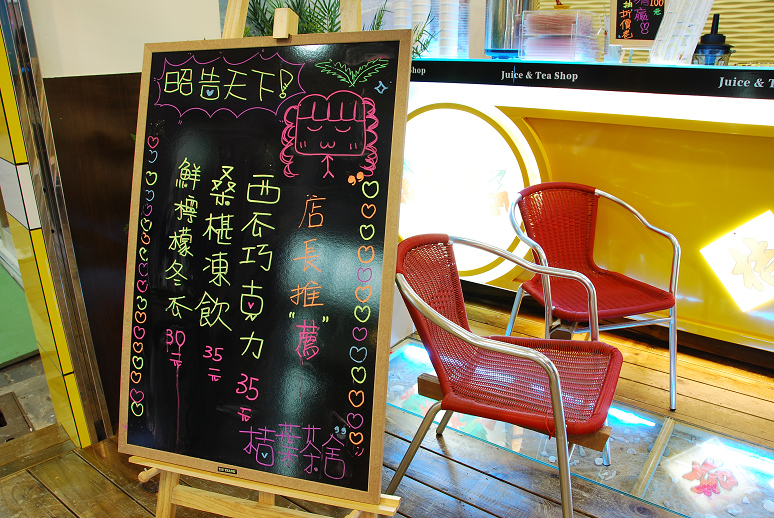 昭告天下!
店長推"薦"
西瓜巧克力 35元
桑椹凍飲 35元
鮮檸檬冬瓜 30元
桔葉茶舍
Juice & Tea Shop
Juice & T
hop
100元